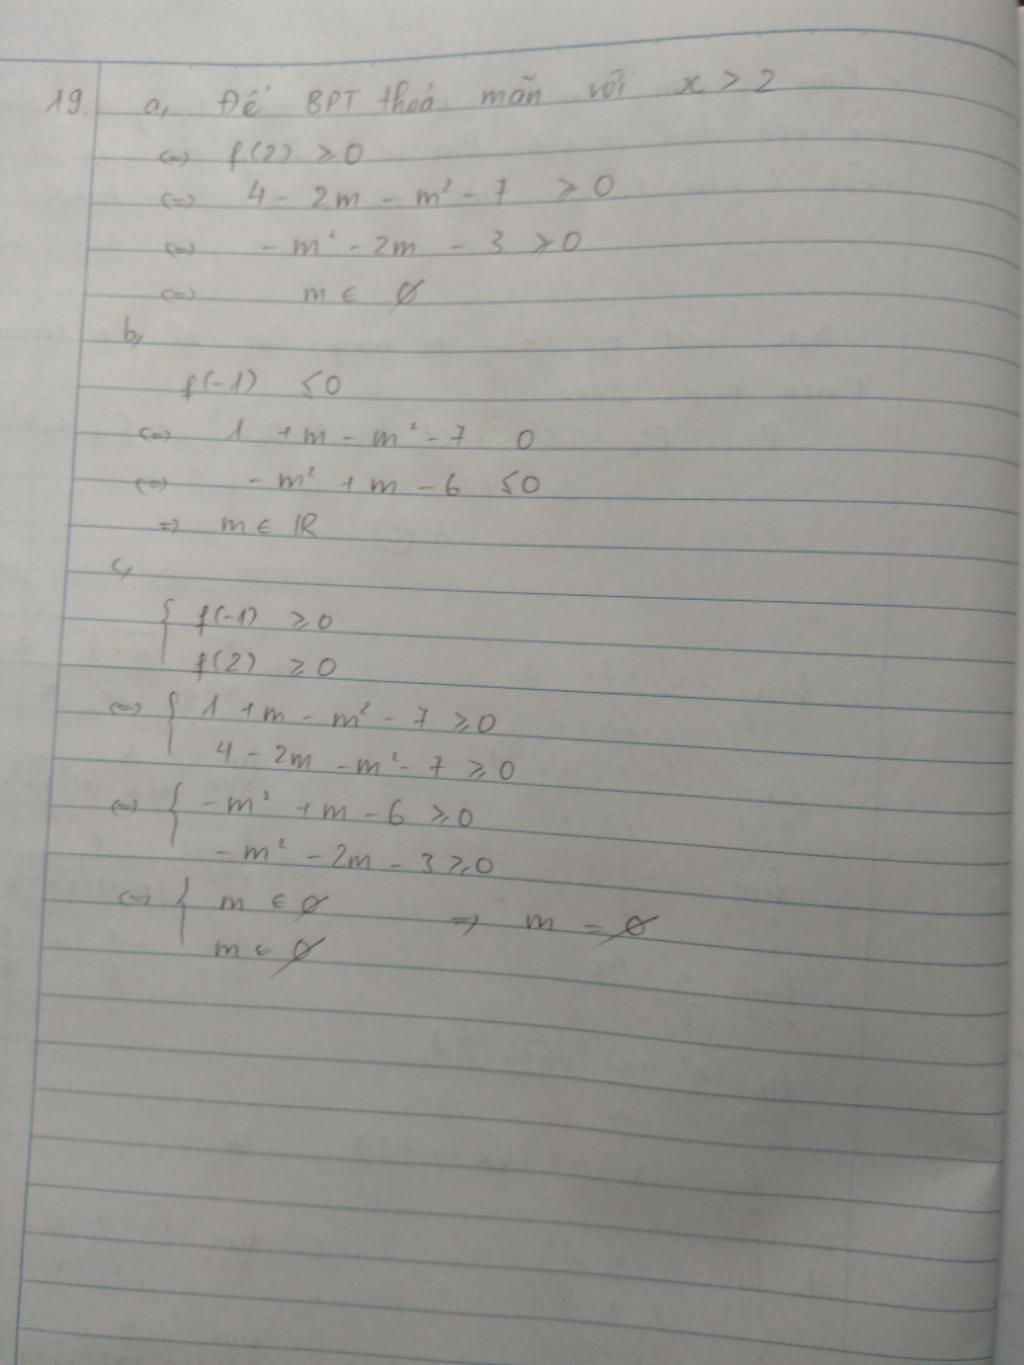 19. a, Để BPT thoả mãn với x > 2
<=> f(2) ≥ 0
<=> 4 - 2m - m² - 7 ≥ 0
<=> - m² - 2m - 3 ≥ 0
<=> m ∈ ∅
b,
f(-1) ≤ 0
<=> 1 + m - m² - 7 0
<=> - m² + m - 6 ≤ 0
=> m ∈ ℝ
c,
{ f(-1) ≥ 0
f(2) ≥ 0
<=> { 1 + m - m² - 7 ≥ 0
4 - 2m - m² - 7 ≥ 0
<=> { - m² + m - 6 ≥ 0
- m² - 2m - 3 ≥ 0
<=> { m ∈ ∅ => m = ∅
m ∈ ∅